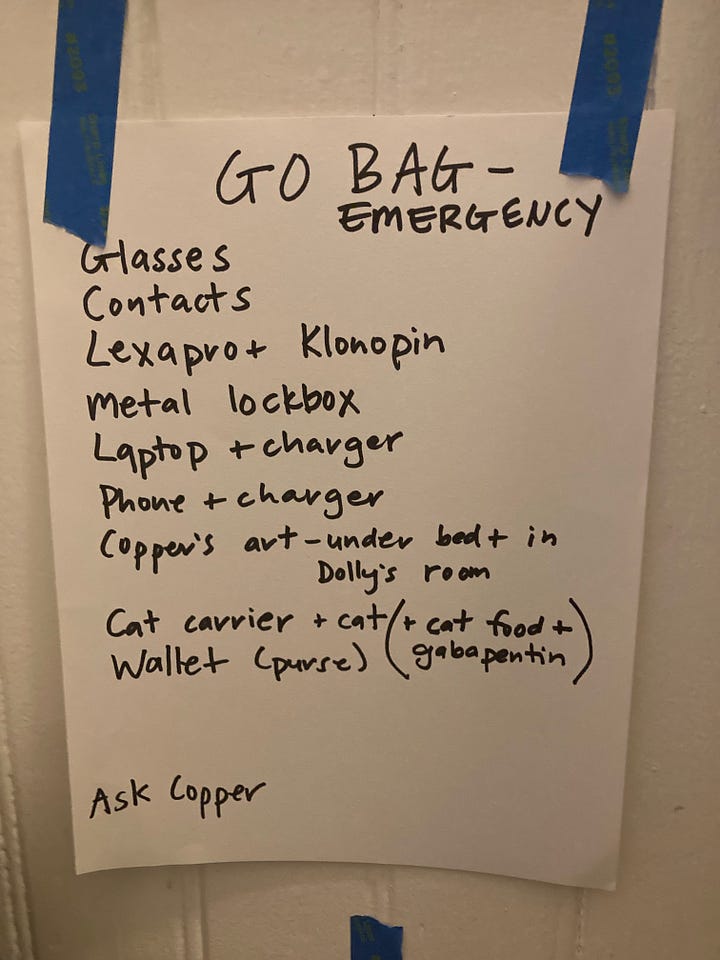 GO BAG -
EMERGENCY
Glasses
Contacts
Lexapro + Klonopin
metal lockbox
Laptop + charger
Phone + charger
Copper's art - under bed + in
Dolly's room
Cat carrier + cat (+ cat food +
gabapentin)
Wallet (purse)
Ask Copper